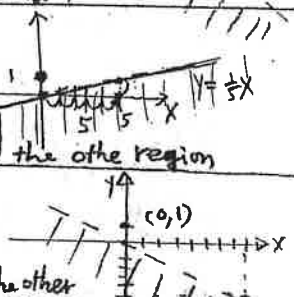 1
Y = 1/5 X
5 5 X
the othe region
Y
(0,1)
X
the other